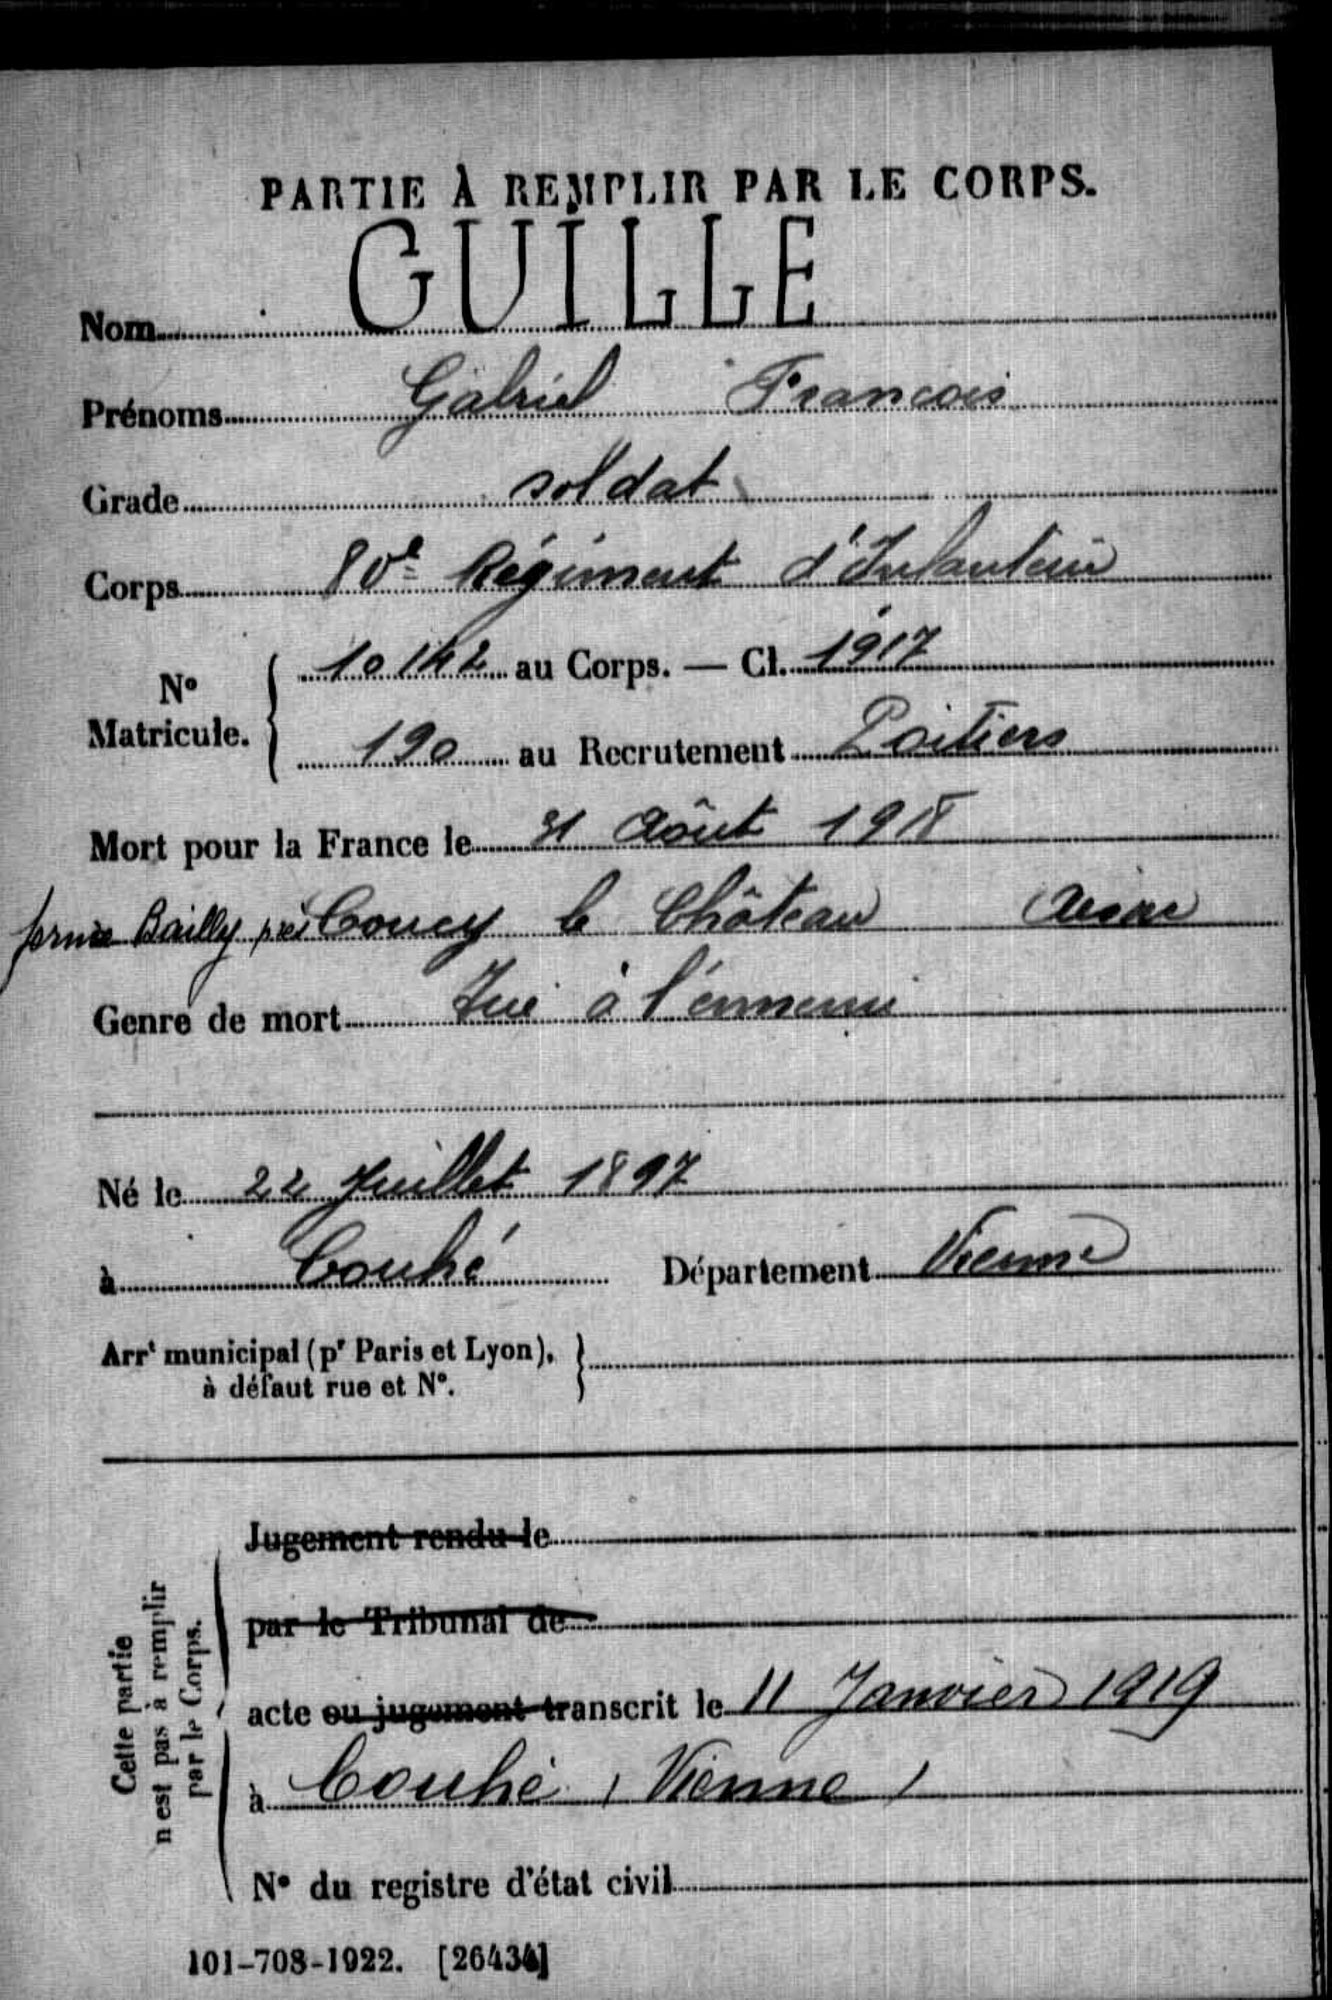 PARTIE À REMPLIR PAR LE CORPS.
Nom GUILLE
Prénoms Gabriel François
Grade soldat
Corps 80e Régiment d'Infanterie
N° Matricule. 10142 au Corps. — Cl. 1917
190 au Recrutement Poitiers
Mort pour la France le 31 Août 1918
ferme Bailly près Coucy le Château Aisne
Genre de mort Tué à l'ennemi
Né le 22 Juillet 1897
à Couhé Département Vienne
Arrt municipal (pr Paris et Lyon),
à défaut rue et N°.
Cette partie
n'est pas à remplir
par le Corps.
Jugement rendu le
par le Tribunal de
acte ou jugement transcrit le 11 Janvier 1919
à Couhé (Vienne)
N° du registre d'état civil
101-708-1922. [26434]